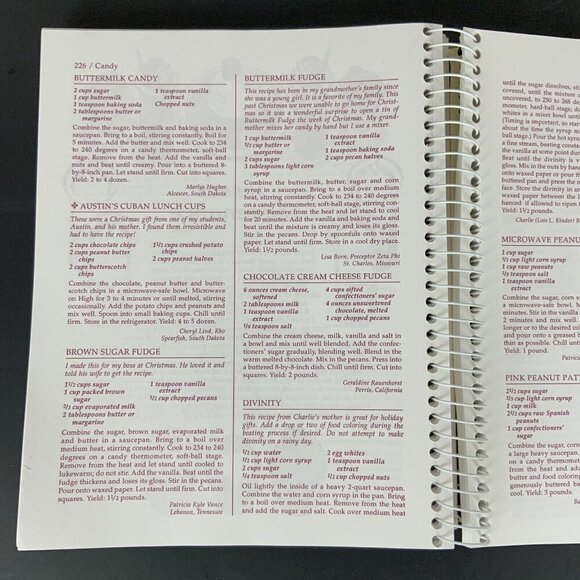 226 / Candy
BUTTERMILK CANDY
2 cups sugar
1 cup buttermilk
1 teaspoon baking soda
2 tablespoons butter or
margarine
1 teaspoon vanilla
extract
Chopped nuts
Combine the sugar, buttermilk and baking soda in a
saucepan. Bring to a boil, stirring constantly. Boil for
5 minutes. Add the butter and mix well. Cook to 234
to 240 degrees on a candy thermometer, soft-ball
stage. Remove from the heat. Add the vanilla and
nuts and beat until creamy. Pour into a buttered 8-
by-8-inch pan. Let stand until firm. Cut into squares.
Yield: 2 to 4 dozen.
Merlys Hughes
Alcester, South Dakota
✤ AUSTIN'S CUBAN LUNCH CUPS
These were a Christmas gift from one of my students,
Austin, and his mother. I found them irresistible and
had to have the recipe!
2 cups chocolate chips
2 cups peanut butter
chips
2 cups butterscotch
chips
1½ cups crushed potato
chips
2 cups peanut halves
Combine the chocolate, peanut butter and butter-
scotch chips in a microwave-safe bowl. Microwave
on High for 3 to 4 minutes or until melted, stirring
occasionally. Add the potato chips and peanuts and
mix well. Spoon into small baking cups. Chill until
firm. Store in the refrigerator. Yield: 4 to 5 dozen.
Cheryl Lind, Rho
Spearfish, South Dakota
BROWN SUGAR FUDGE
I made this for my boss at Christmas. He loved it and
told his wife to get the recipe.
1½ cups sugar
1 cup packed brown
sugar
⅔ cup evaporated milk
2 tablespoons butter or
margarine
1 teaspoon vanilla
extract
½ cup chopped pecans
Combine the sugar, brown sugar, evaporated milk
and butter in a saucepan. Bring to a boil over
medium heat, stirring constantly. Cook to 234 to 240
degrees on a candy thermometer, soft-ball stage.
Remove from the heat and let stand until cooled to
lukewarm; do not stir. Add the vanilla. Beat until the
fudge thickens and loses its gloss. Stir in the pecans.
Pour onto waxed paper. Let stand until firm. Cut into
squares. Yield: 1½ pounds.
Patricia Kyle Vance
Lebanon, Tennessee
BUTTERMILK FUDGE
This recipe has been in my grandmother's family since
she was a young girl. It is a favorite of my family. This
past Christmas we were unable to go home for Christ-
mas so it was a wonderful surprise to open a tin of
Buttermilk Fudge the week of Christmas. My grand-
mother mixes her candy by hand but I use a mixer.
1 cup buttermilk
½ cup butter or
margarine
2 cups sugar
2 tablespoons light corn
syrup
1 teaspoon vanilla
extract
1 teaspoon baking soda
2 cups pecan halves
Combine the buttermilk, butter, sugar and corn
syrup in a saucepan. Bring to a boil over medium
heat, stirring constantly. Cook to 234 to 240 degrees
on a candy thermometer, soft-ball stage, stirring con-
stantly. Remove from the heat and let stand to cool
for 20 minutes. Add the vanilla and baking soda and
beat until the mixture is creamy and loses its gloss.
Stir in the pecans. Drop by spoonfuls onto waxed
paper. Let stand until firm. Store in a cool dry place.
Yield: 1½ pounds.
Lisa Born, Preceptor Zeta Phi
St. Charles, Missouri
CHOCOLATE CREAM CHEESE FUDGE
6 ounces cream cheese,
softened
2 tablespoons milk
1 teaspoon vanilla
extract
⅛ teaspoon salt
4 cups sifted
confectioners' sugar
4 ounces unsweetened
chocolate, melted
1 cup chopped pecans
Combine the cream cheese, milk, vanilla and salt in
a bowl and mix until well blended. Add the confec-
tioners' sugar gradually, blending well. Blend in the
warm melted chocolate. Mix in the pecans. Press into
a buttered 8-by-8-inch dish. Chill until firm. Cut into
squares. Yield: 2 pounds.
Geraldine Rauenhorst
Perris, California
DIVINITY
This recipe from Charlie's mother is great for holiday
gifts. Add a drop or two of food coloring during the
beating process if desired. Do not attempt to make
divinity on a rainy day.
½ cup water
½ cup light corn syrup
2 cups sugar
¼ teaspoon salt
2 egg whites
1 teaspoon vanilla
extract
½ cup chopped nuts
Oil lightly inside of a heavy 2-quart saucepan.
Combine the water and corn syrup in the pan. Bring
to a boil over medium heat. Remove from the heat
and add the sugar and salt. Cook over medium heat
until the sugar dissolves, stir
covered, until the mixture
uncovered, to 250 to 268 de
mometer, hard-ball stage; do
whites in a mixer bowl until
(Timing is important, so star
about the time the syrup m
ball stage.) Pour the hot syru
a fine stream, beating constan
the vanilla at some point duri
Beat until the divinity is v
gloss. Mix in the nuts by han
onto waxed paper or pour th
buttered pan and press the
face. Store the divinity in an
layers separated with waxed
hanced if allowed to ripen
Yield: 1½ pounds.
Charlie (Lois L. Kinder) B
MICROWAVE PEANU
1 cup sugar
½ cup light corn syrup
1 cup raw peanuts
⅛ teaspoon salt
1 teaspoon vanilla
extract
Combine the sugar, corn s
a microwave-safe bowl. M
minutes. Stir the mixture
longer or to the desired co
and pour onto a greased b
thin as possible. Chill unti
Yield: 1 pound.
Patric
PINK PEANUT PATT
2½ cups sugar
⅔ cup light corn syrup
1 cup milk
2½ cups raw Spanish
peanuts
1 cup confectioners'
sugar
Combine the sugar, corn s
a large heavy saucepan.
on a candy thermometer,
from the heat and add
butter and food coloring
generously buttered ba
cool. Yield: 3 pounds.
Ba